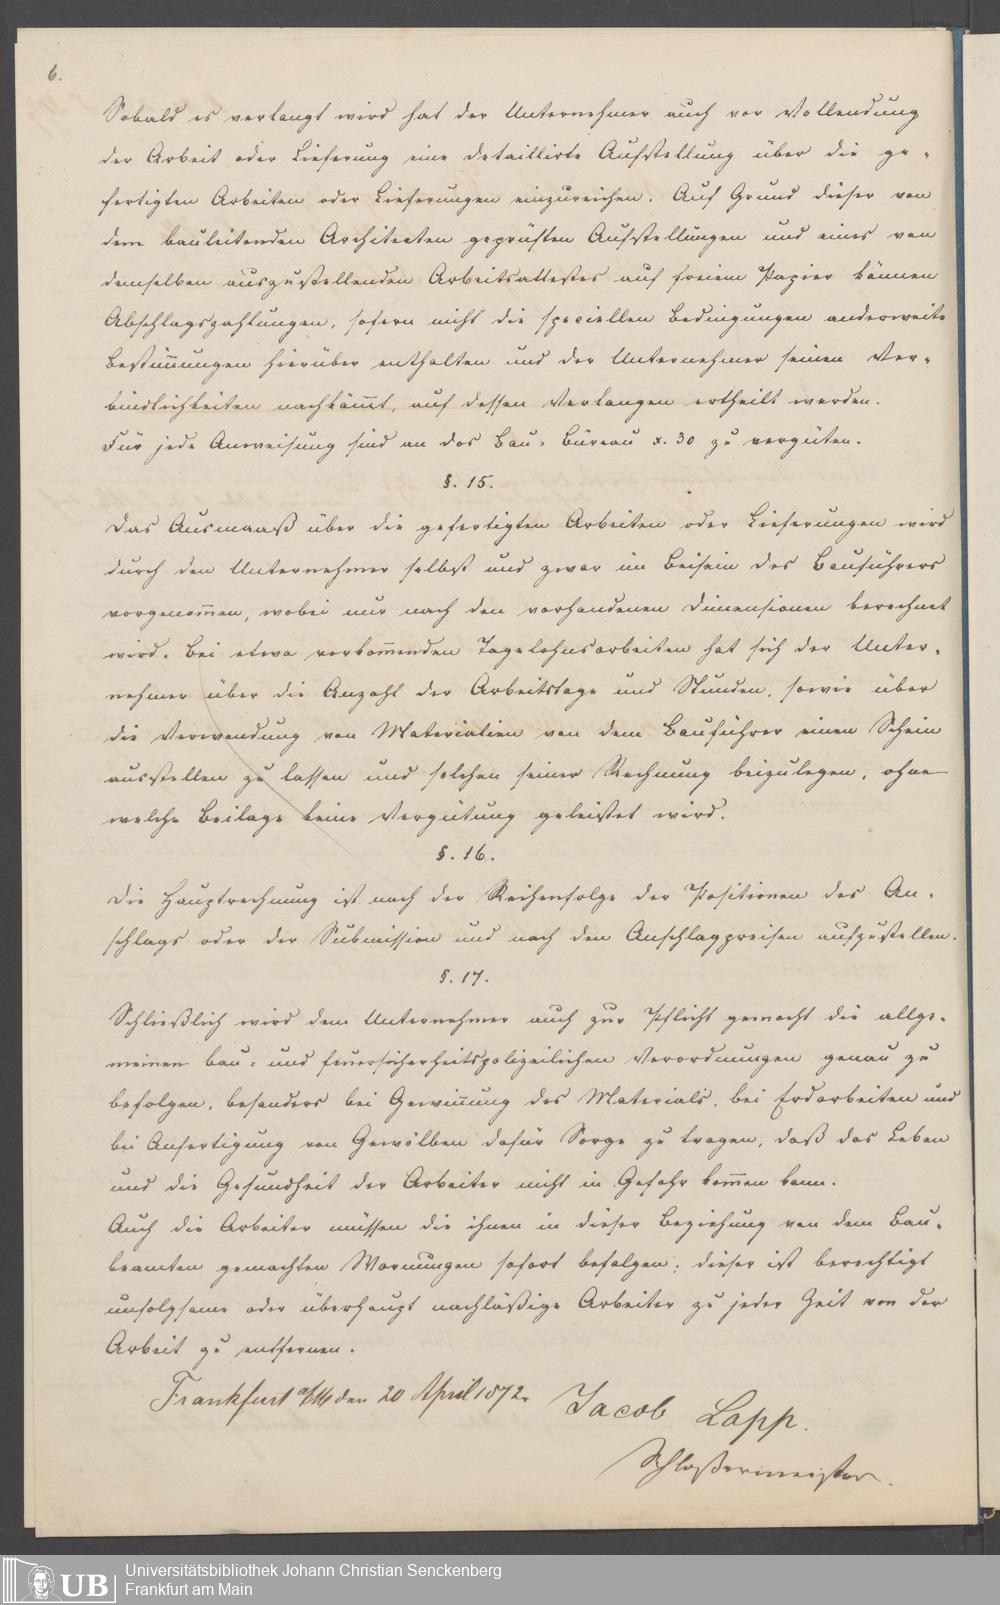 6.
Sobald es verlangt wird hat der Unternehmer auch vor Vollendung
der Arbeit oder Lieferung eine detaillirte Aufstellung über die ge-
fertigten Arbeiten oder Lieferungen einzureichen. Auf Grund dieser von
dem bauleitenden Architecten geprüften Aufstellungen und eines von
demselben auszustellenden Arbeitsattestes auf freiem Papier können
Abschlagszahlungen, sofern nicht die speciellen Bedingungen anderweite
Bestim̅ungen hierüber enthalten und der Unternehmer seinen Ver-
bindlichkeiten nachköm̅t, auf dessen Verlangen ertheilt werden.
Für jede Anweisung sind an das Bau-Büreau x. 30 zu vergüten.
§. 15.
Das Ausmaaß über die gefertigten Arbeiten oder Lieferungen wird
durch den Unternehmer selbst und zwar im Beisein des Bauführers
vorgenom̅en, wobei nur nach den vorhandenen Dimensionen berechnet
wird. Bei etwa vorkom̅enden Tagelohnsarbeiten hat sich der Unter-
nehmer über die Anzahl der Arbeitstage und Stunden, sowie über
die Verwendung von Materialien von dem Bauführer einen Schein
ausstellen zu lassen und solchen seiner Rechnung beizulegen, ohne
welche Beilage keine Vergütung geleistet wird.
§. 16.
Die Hauptrechnung ist nach der Reihenfolge der Positionen des An-
schlags oder der Submission und nach den Anschlagpreisen aufzustellen.
§. 17.
Schließlich wird dem Unternehmer auch zur Pflicht gemacht die allge-
meinen bau- und feuersicherheitspolizeilichen Verordnungen genau zu
befolgen, besonders bei Gewin̅ung des Materials, bei Erdarbeiten und
bei Anfertigung von Gewölben dafür Sorge zu tragen, daß das Leben
und die Gesundheit der Arbeiter nicht in Gefahr kom̅en kann.
Auch die Arbeiter müssen die ihnen in dieser Beziehung von dem Bau-
beamten gemachten Warnungen sofort befolgen; dieser ist berechtigt
unfolgsame oder überhaupt nachläßige Arbeiter zu jeder Zeit von der
Arbeit zu entfernen.
Frankfurt a/M den 20 April 1872.
Jacob Lapp.
Schloßermeister.
UB
Universitätsbibliothek Johann Christian Senckenberg
Frankfurt am Main